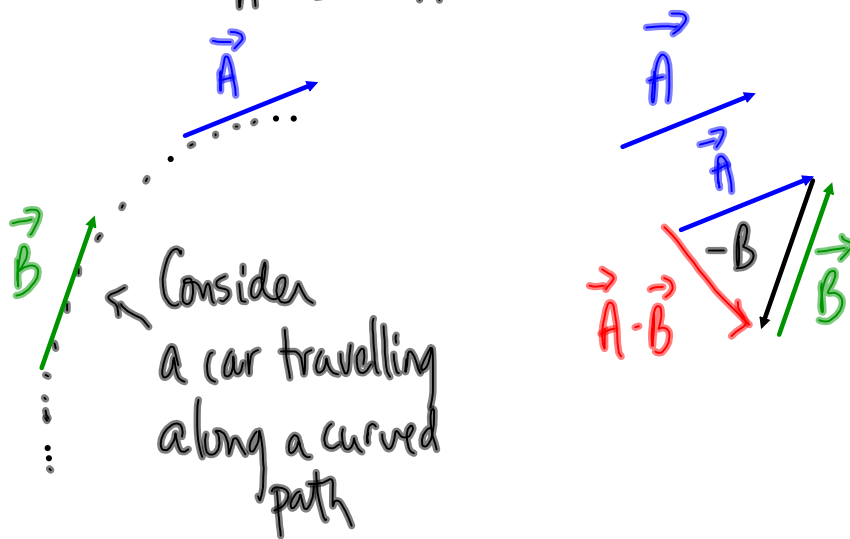 A⃗
B⃗
Consider
a car travelling
along a curved
path
A⃗
A⃗
-B
B⃗
A⃗-B⃗